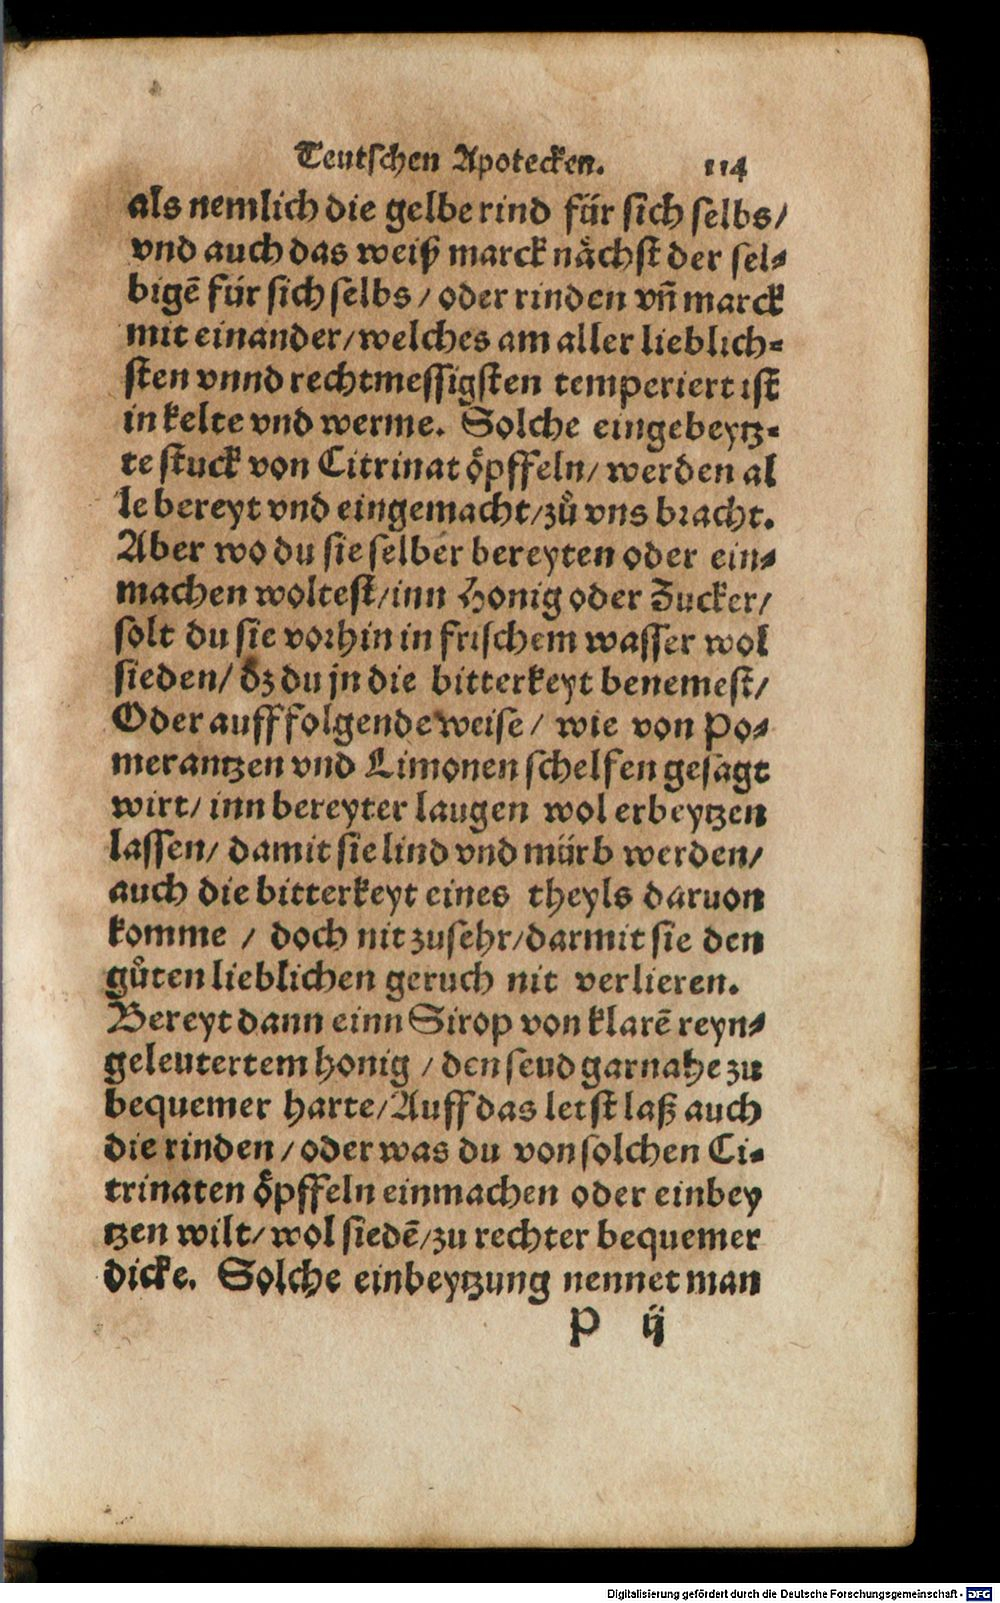 Teutschen Apotecken. 114
als nemlich die gelbe rind für sich selbs/
vnd auch das weiß marck nåchst der sel-
bigē für sich selbs / oder rinden vñ marck
mit einander/welches am aller lieblich-
sten vnnd rechtmessigsten temperiert ist
in kelte vnd werme. Solche eingebeytz-
te stuck von Citrinat öpffeln/ werden al
le bereyt vnd eingemacht/zů vns bracht.
Aber wo du sie selber bereyten oder ein-
machen woltest/inn Honig oder Zucker/
solt du sie vorhin in frischem wasser wol
sieden/ dz du jn die bitterkeyt benemest/
Oder auff folgende weise/ wie von Po-
merantzen vnd Limonen schelfen gesagt
wirt/ inn bereyter laugen wol erbeytzen
lassen/ damit sie lind vnd mürb werden/
auch die bitterkeyt eines theyls daruon
komme / doch nit zusehr/darmit sie den
gůten lieblichen geruch nit verlieren.
Bereyt dann einn Sirop von klarē reyn-
geleutertem honig / den seud garnahe zu
bequemer harte/Auff das letst laß auch
die rinden / oder was du von solchen Ci-
trinaten öpffeln einmachen oder einbey
tzen wilt/ wol siedē/zu rechter bequemer
dicke. Solche einbeytzung nennet man
P ij
Digitalisierung gefördert durch die Deutsche Forschungsgemeinschaft - DFG